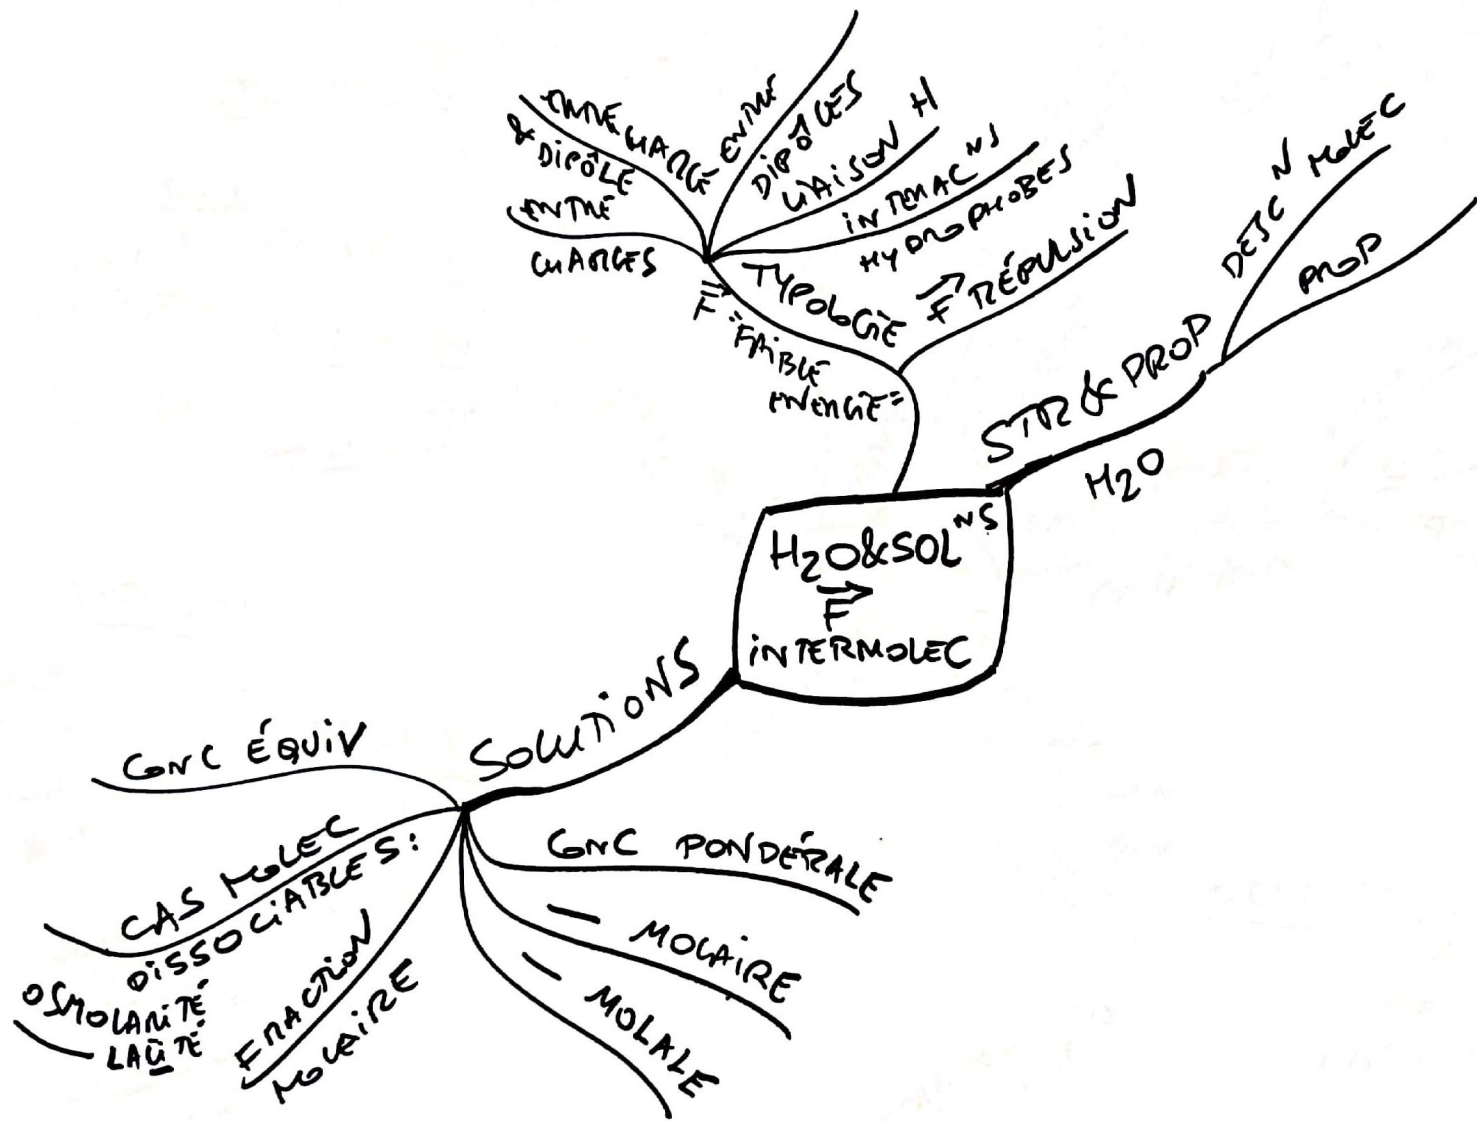 H2O&SOL NS
F
INTERMOLEC
STR & PROP
H2O
DESC N MOLEC
PROP
F RÉPULSION
TYPOLOGIE
F "FAIBLE
ENERGIE"
ENTRE CHARGE
& DIPÔLE
ENTRE
CHARGES
ENTRE
DIPÔLES
LIAISON H
INTERAC NS
HYDROPHOBES
SOLUTIONS
CONC ÉQUIV
CAS MOLEC
DISSOCIABLES:
OSMOLARITÉ
FRACTION
MOLAIRE
CONC PONDÉRALE
— MOLAIRE
— MOLALE